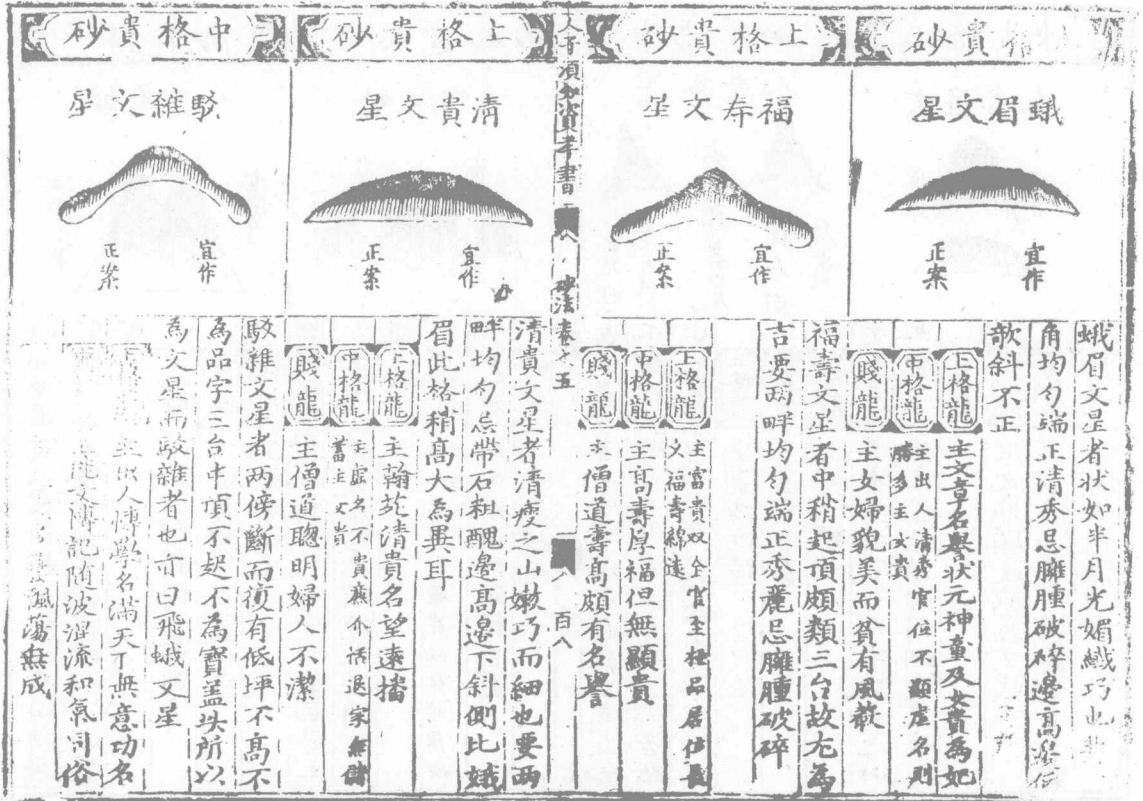 貴砂
蛾眉文星
宜作
正案
蛾眉文星者狀如半月光媚纖巧也
角均勻端正清秀忌臃腫破碎邊高
欹斜不正
上格龍
主文章名譽狀元神童及女貴為妃
中格龍
主出人清秀官位不顯虛名則
勝多主女貴
賤龍
主女婦貌美而貧有風
上格貴砂
福寿文星
宜作
正案
福壽文星者中稍起頂頗類三台故尤為
吉要兩畔均勻端正秀麗忌臃腫破碎
上格龍
主富貴双全官至極品居
又福壽綿遠
中格龍
主高壽厚福但無顯貴
賤龍
主僧道壽高頗有名譽
人子須知資孝書
砂法卷之五
百八
上格貴砂
清貴文星
宜作
正案
清貴文星者清瘦之山嫩巧而細也要兩
畔均勻忌帶石粗醜邊高邊下斜側比娥
眉此格稍高大為異耳
上格龍
主翰苑清貴名望遠播
中格龍
主虛名不貴恬退家無儲
蓄主女貴
賤龍
主僧道聰明婦人不潔
中格貴砂
駁雜文星
宜作
正案
駁雜文星者两傍斷而復有低坪不高不
為品字三台中頂不起不為寶盖此所以
為文星而駁雜者也亦曰飛蛾文星
主出人博學名滿天下無意功名
文博記随波混流和氣同俗
飄蕩無成